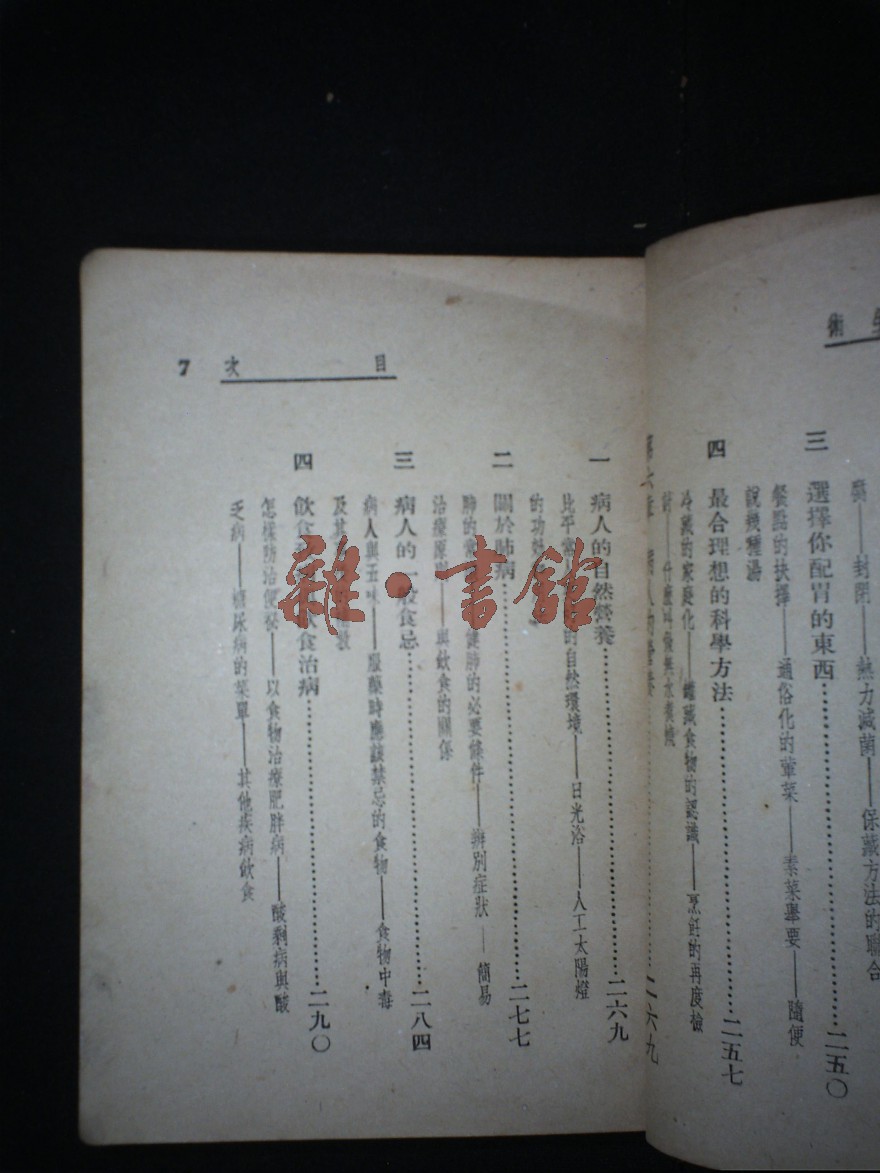 術
醬——封閉——熱力減菌——保藏方法的聯合
三 選擇你配胃的東西……二五〇
餐點的抉擇——通俗化的葷菜——素菜舉要——隨便
說幾種湯
四 最合理想的科學方法……二五七
冷藏的家庭化——罐藏食物的認識——烹飪的再度檢
討——
第六章 病人的營養……二六九
目次 7
一 病人的自然營養……二六九
比平常人 的自然環境——日光浴——人工太陽燈
的功效
二 關於肺病……二七七
肺的 健肺的必要條件——辨別症狀——簡易
治療原則——與飲食的關係
三 病人的一般食忌……二八四
病人與五味——服藥時應該禁忌的食物——食物中毒
及其
四 飲食 飲食治病……二九〇
怎樣防治便祕——以食物治療肥胖病——酸剩病與酸
乏病——糖尿病的菜單——其他疾病飲食
雜·書館